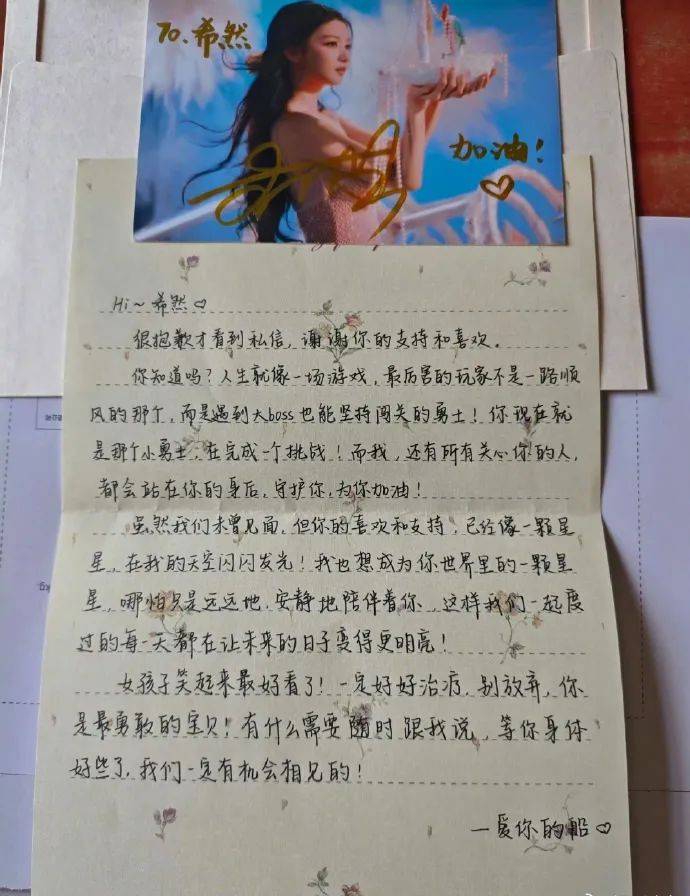 To.希然
加油!♡
Hi~希然♡
很抱歉才看到私信,谢谢你的支持和喜欢。
你知道吗?人生就像一场游戏,最厉害的玩家不是一路顺
风的那个,而是遇到大boss也能坚持闯关的勇士!你现在就
是那个小勇士,在完成一个挑战!而我,还有所有关心你的人,
都会站在你的身后,守护你,为你加油!
虽然我们未曾见面,但你的喜欢和支持,已经像一颗星
星,在我的天空闪闪发光!我也想成为你世界里的一颗星
星,哪怕只是远远地,安静地陪伴着你,这样我们一起度
过的每一天都在让未来的日子变得更明亮!
女孩子笑起来最好看了!一定好好治疗,别放弃,你
是最勇敢的宝贝!有什么需要随时跟我说,等你身体
好些了,我们一定有机会相见的!
—爱你的船♡